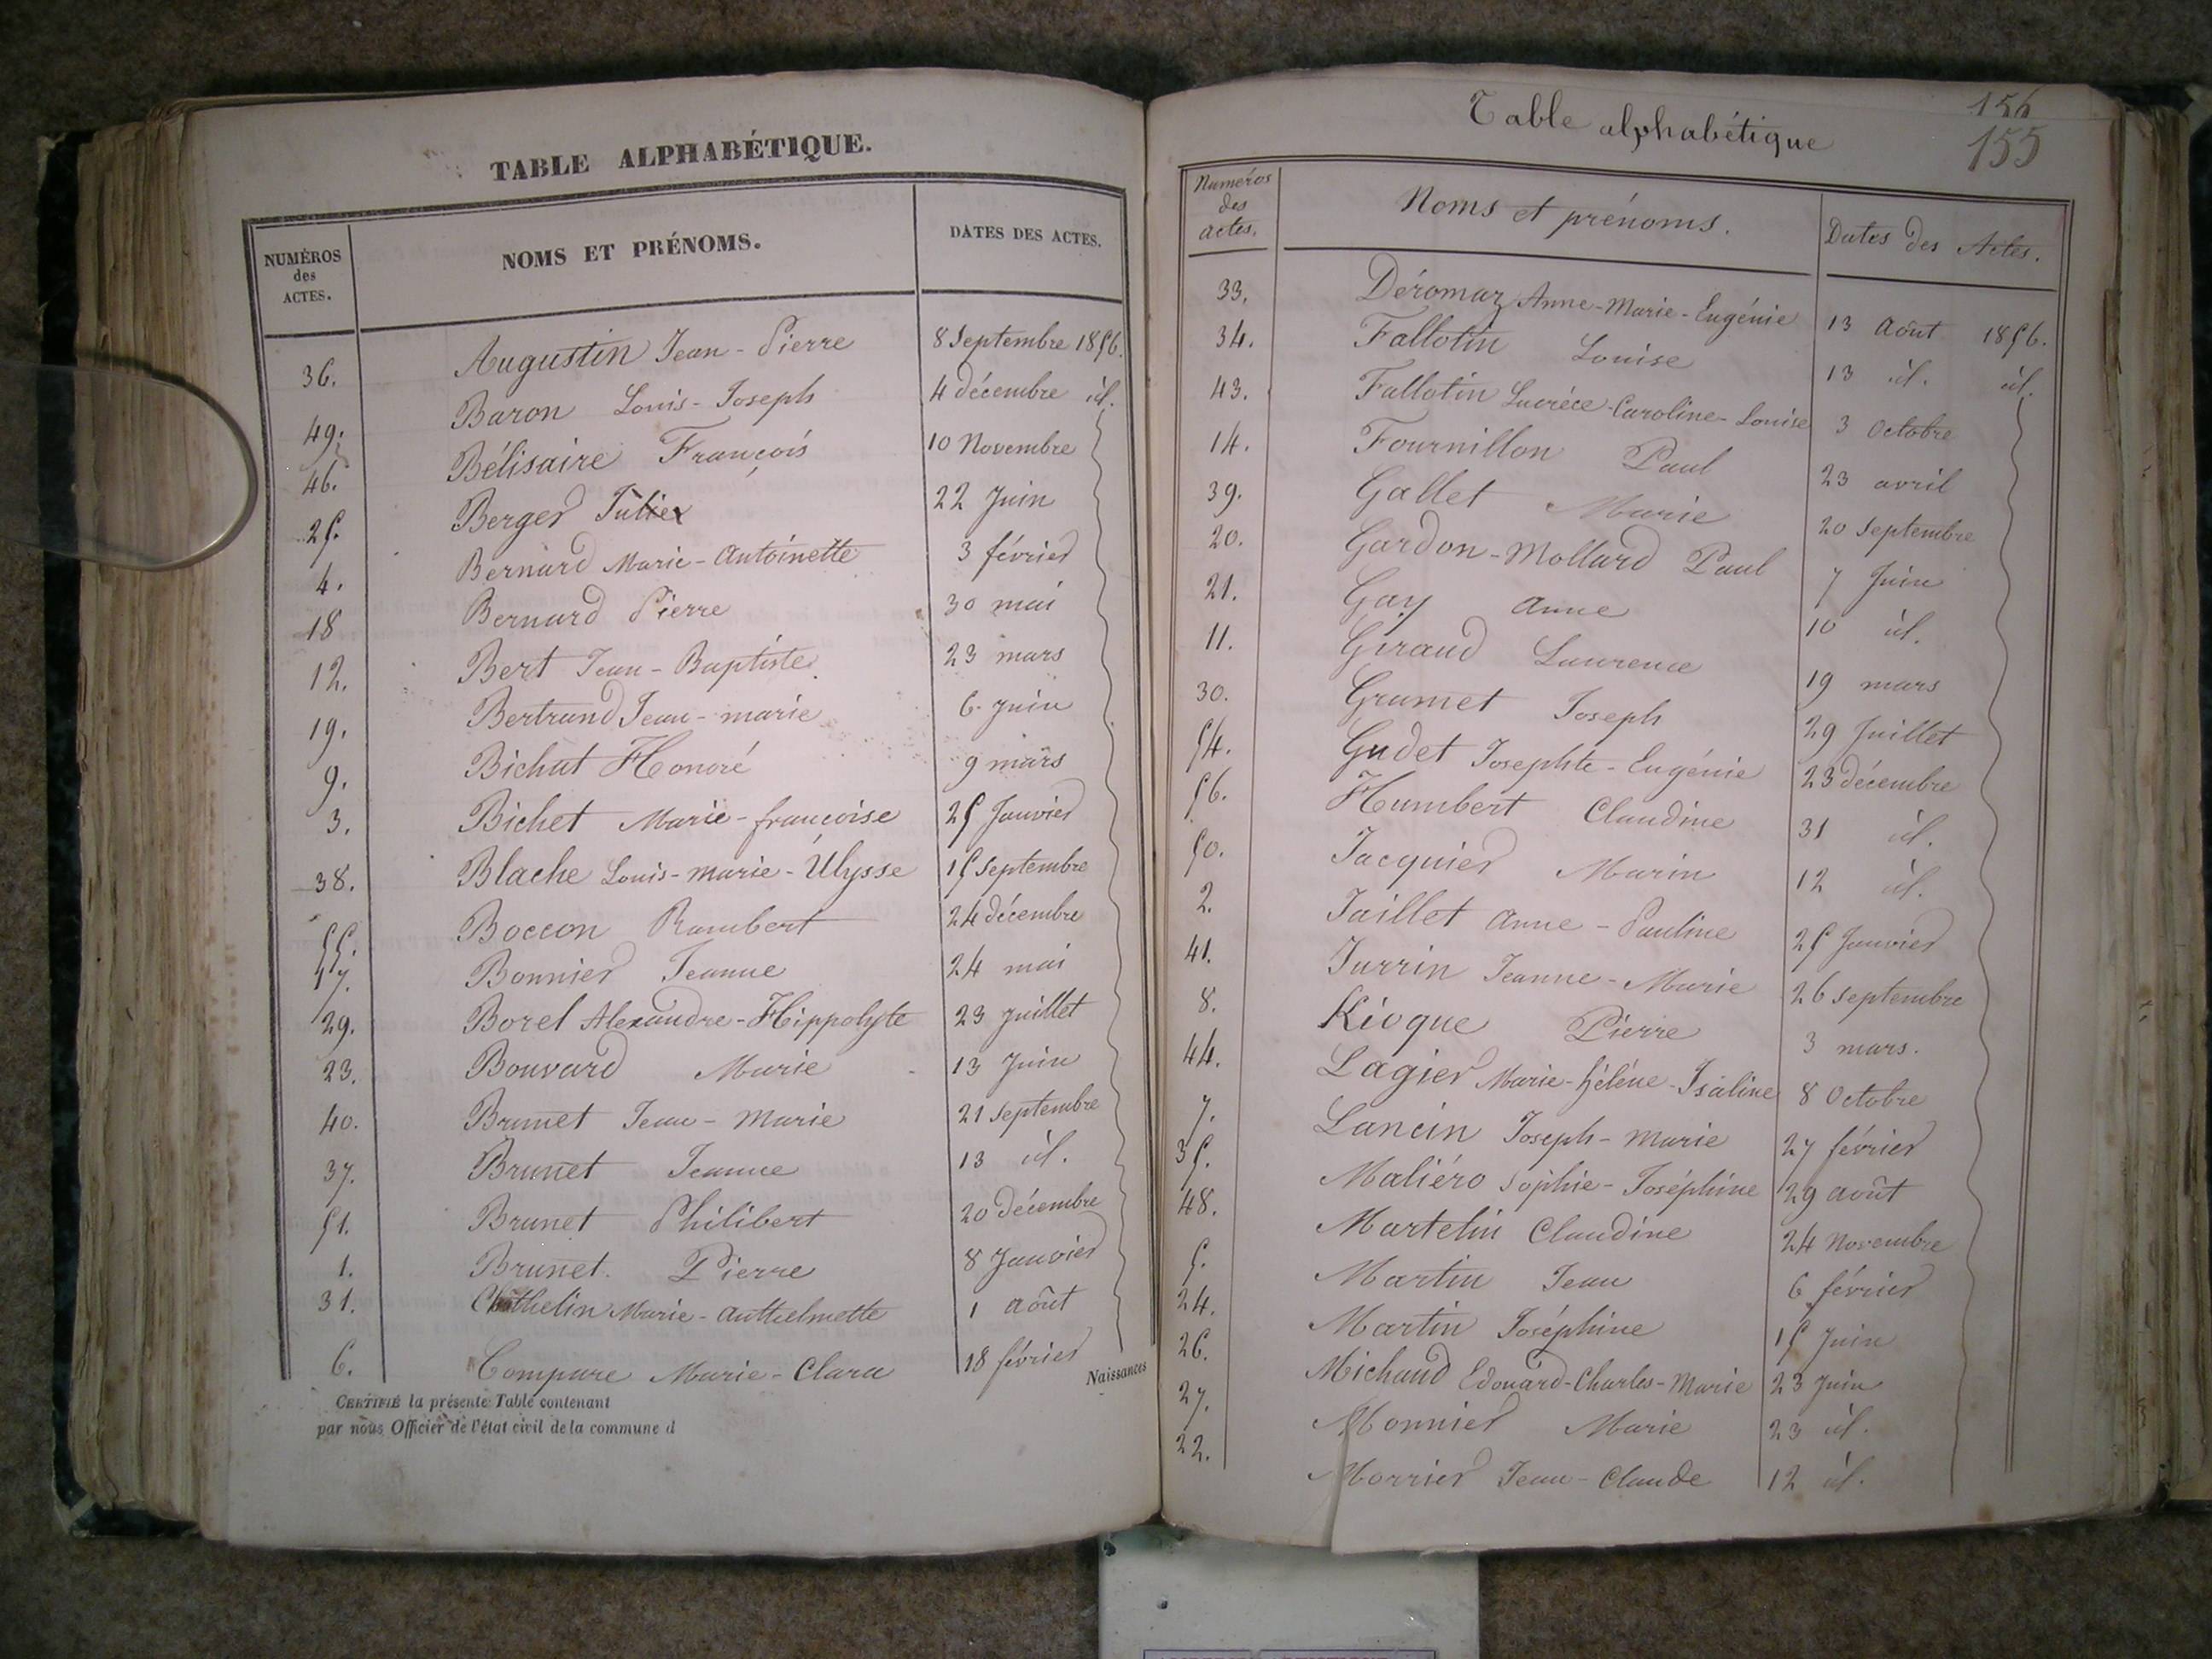 TABLE ALPHABÉTIQUE.
NUMÉROS des ACTES. NOMS ET PRÉNOMS. DATES DES ACTES.
36. Augustin Jean-Pierre 8 Septembre 1856.
49. Baron Louis-Joseph 4 décembre id.
46. Bélisaire François 10 Novembre
25. Berger 22 Juin
4. Bernard Marie-Antoinette 3 février
18 Bernard Pierre 30 mai
12. Bert Jean-Baptiste 23 mars
19. Bertrand Jean-marie 6 Juin
9. Bichat Honoré 9 mars
3. Bichet Marie-françoise 25 Janvier
38. Blache Louis-marie-Ulysse 15 septembre
55. Boccon Rambert 24 décembre
17. Bonnier Jeanne 24 mai
29. Borel Alexandre-Hippolyte 23 juillet
23. Bouvard Marie 13 Juin
40. Brunet Jean-Marie 21 septembre
37. Brunet Jeanne 13 id.
51. Brunet Philibert 20 décembre
1. Brunet Pierre 8 Janvier
31. Chathelin Marie-anthelmette 1 août
6. Compare Marie-Clara 18 février
Naissances
CERTIFIÉ la présente Table contenant
par nous Officier de l'état civil de la commune d
156
155
Table alphabétique
Numéros des actes. Noms et prénoms. Dates des Actes.
33. Déromaz Anne-Marie-Eugénie 13 Août 1856.
34. Fallotin Louise 13 id. id.
43. Fallotin Lucrèce-Caroline-Louise 3 Octobre
14. Fournillon Paul 23 avril
39. Gallet Marie 20 Septembre
20. Gardon-Mollard Paul 7 Juin
21. Gay Anne 10 id.
11. Giraud Laurence 19 mars
30. Grumet Joseph 29 Juillet
54. Gudet Josephte-Eugénie 23 décembre
56. Humbert Claudine 31 id.
50. Jacquier Marin 12 id.
2. Jaillet Anne-Pauline 25 Janvier
41. Jurrin Jeanne-Marie 26 septembre
8. Kioque Pierre 3 mars.
44. Lagier Marie-héléne-Isaline 8 Octobre
7. Lancin Joseph-Marie 27 février
35. Maliéro Sophie-Joséphine 29 août
48. Martelin Claudine 24 Novembre
5. Martin Jean 6 février
24. Martin Joséphine 15 Juin
26. Michaud Edouard-Charles-Marie 23 Juin
27. Monnier Marie 23 id.
22. Morrier Jean-Claude 12 id.